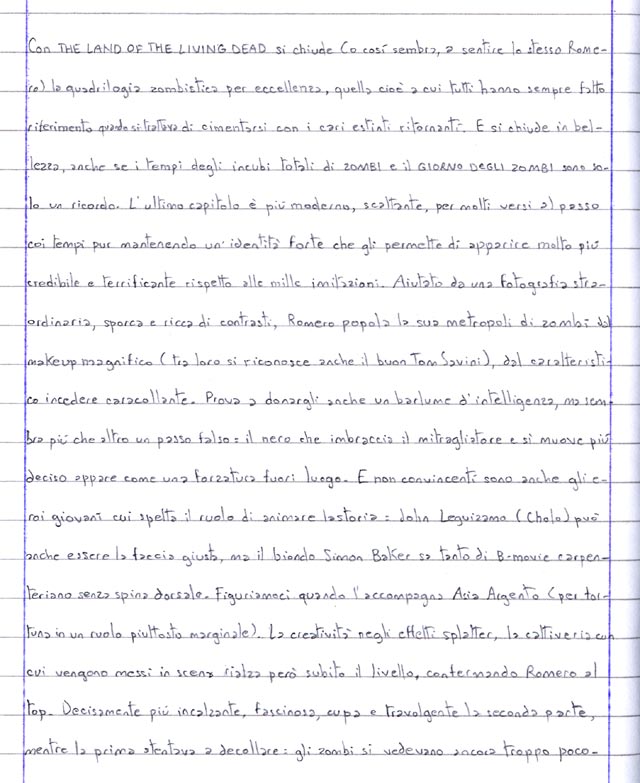 Con THE LAND OF THE LIVING DEAD si chiude (o cosí sembra, a sentire lo stesso Rome-
ro) la quadrilogia zombistica per eccellenza, quella cioè a cui tutti hanno sempre fatto
riferimento quando si trattava di cimentarsi con i cari estinti ritornanti. E si chiude in bel-
lezza, anche se i tempi degli incubi totali di ZOMBI e il GIORNO DEGLI ZOMBI sono so-
lo un ricordo. L'ultimo capitolo è piú moderno, scattante, per molti versi al passo
coi tempi pur mantenendo un'identità forte che gli permette di apparire molto piú
credibile e terrificante rispetto alle mille imitazioni. Aiutato da una fotografia stra-
ordinaria, sporca e ricca di contrasti, Romero popola la sua metropoli di zombi dal
makeup magnifico (tra loro si riconosce anche il buon Tom Savini), dal caratteristi-
co incedere caracollante. Prova a donargli anche un barlume d'intelligenza, ma sem-
bra piú che altro un passo falso: il nero che imbraccia il mitragliatore e si muove piú
deciso appare come una forzatura fuori luogo. E non convincenti sono anche gli e-
roi giovani cui spetta il ruolo di animare la storia: John Leguizamo (Cholo) può
anche essere la faccia giusta, ma il biondo Simon Baker sa tanto di B-movie carpen-
teriano senza spina dorsale. Figuriamoci quando l'accompagna Asia Argento (per for-
tuna in un ruolo piuttosto marginale). La creatività negli effetti splatter, la cattiveria con
cui vengono messi in scena rialza però subito il livello, confermando Romero al
top. Decisamente piú incalzante, fascinosa, cupa e travolgente la seconda parte,
mentre la prima stentava a decollare: gli zombi si vedevano ancora troppo poco-